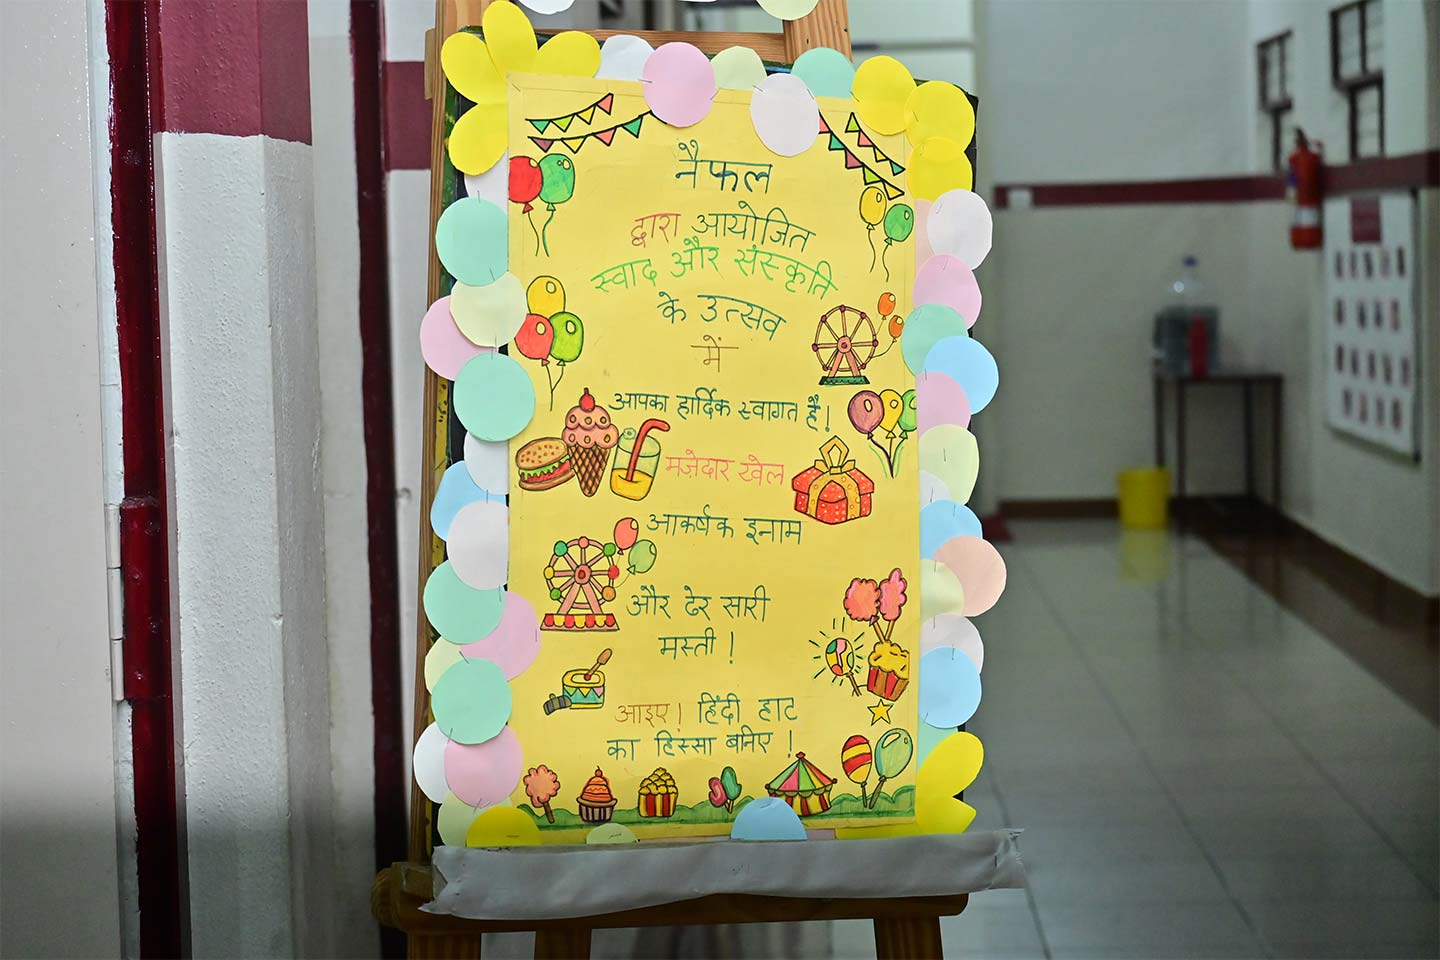 नैफल
द्वारा आयोजित
स्वाद और संस्कृति
के उत्सव
में
आपका हार्दिक स्वागत है!
मज़ेदार खेल
आकर्षक इनाम
और ढेर सारी
मस्ती!
आइए! हिंदी हाट
का हिस्सा बनिए!